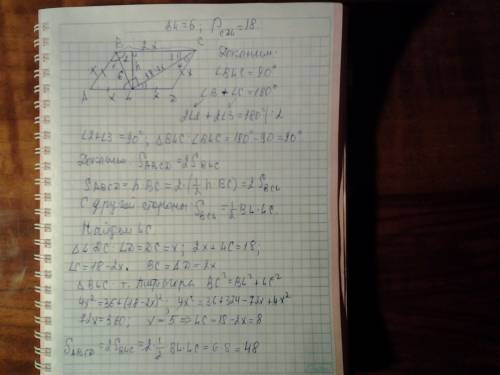 BL=6; P_CDL=18
B 2x C
Докажем:
∠BLC=90°
∠B+∠C=180°
2∠2+2∠3=180° |:2
A x L x D
∠2+∠3=90°; △BLC ∠BLC=180°-90=90°
Докажем S_ABCD=2S_BLC
S_ABCD=h·BC=2·(½h·BC)=2S_BCL
С другой стороны S_BCL=½BL·LC
Найдём LC
△LDC LD=DC=x; 2x+LC=18,
LC=18-2x. BC=AD=2x
△BLC т. Пифагора BC²=BL²+LC²
4x²=36+(18-2x)² 4x²=36+324-72x+4x²
72x=360; x=5 ⇒ LC=18-2x=8
S_ABCD=2S_BLC=2·½BL·LC=6·8=48